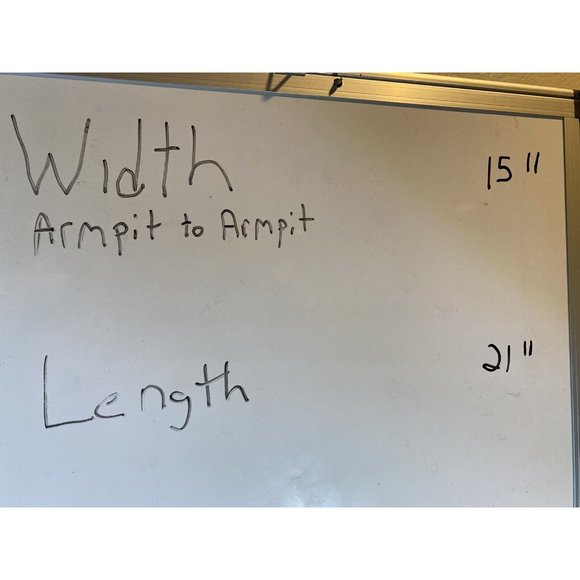 Width 15"
Armpit to Armpit
Length 21"